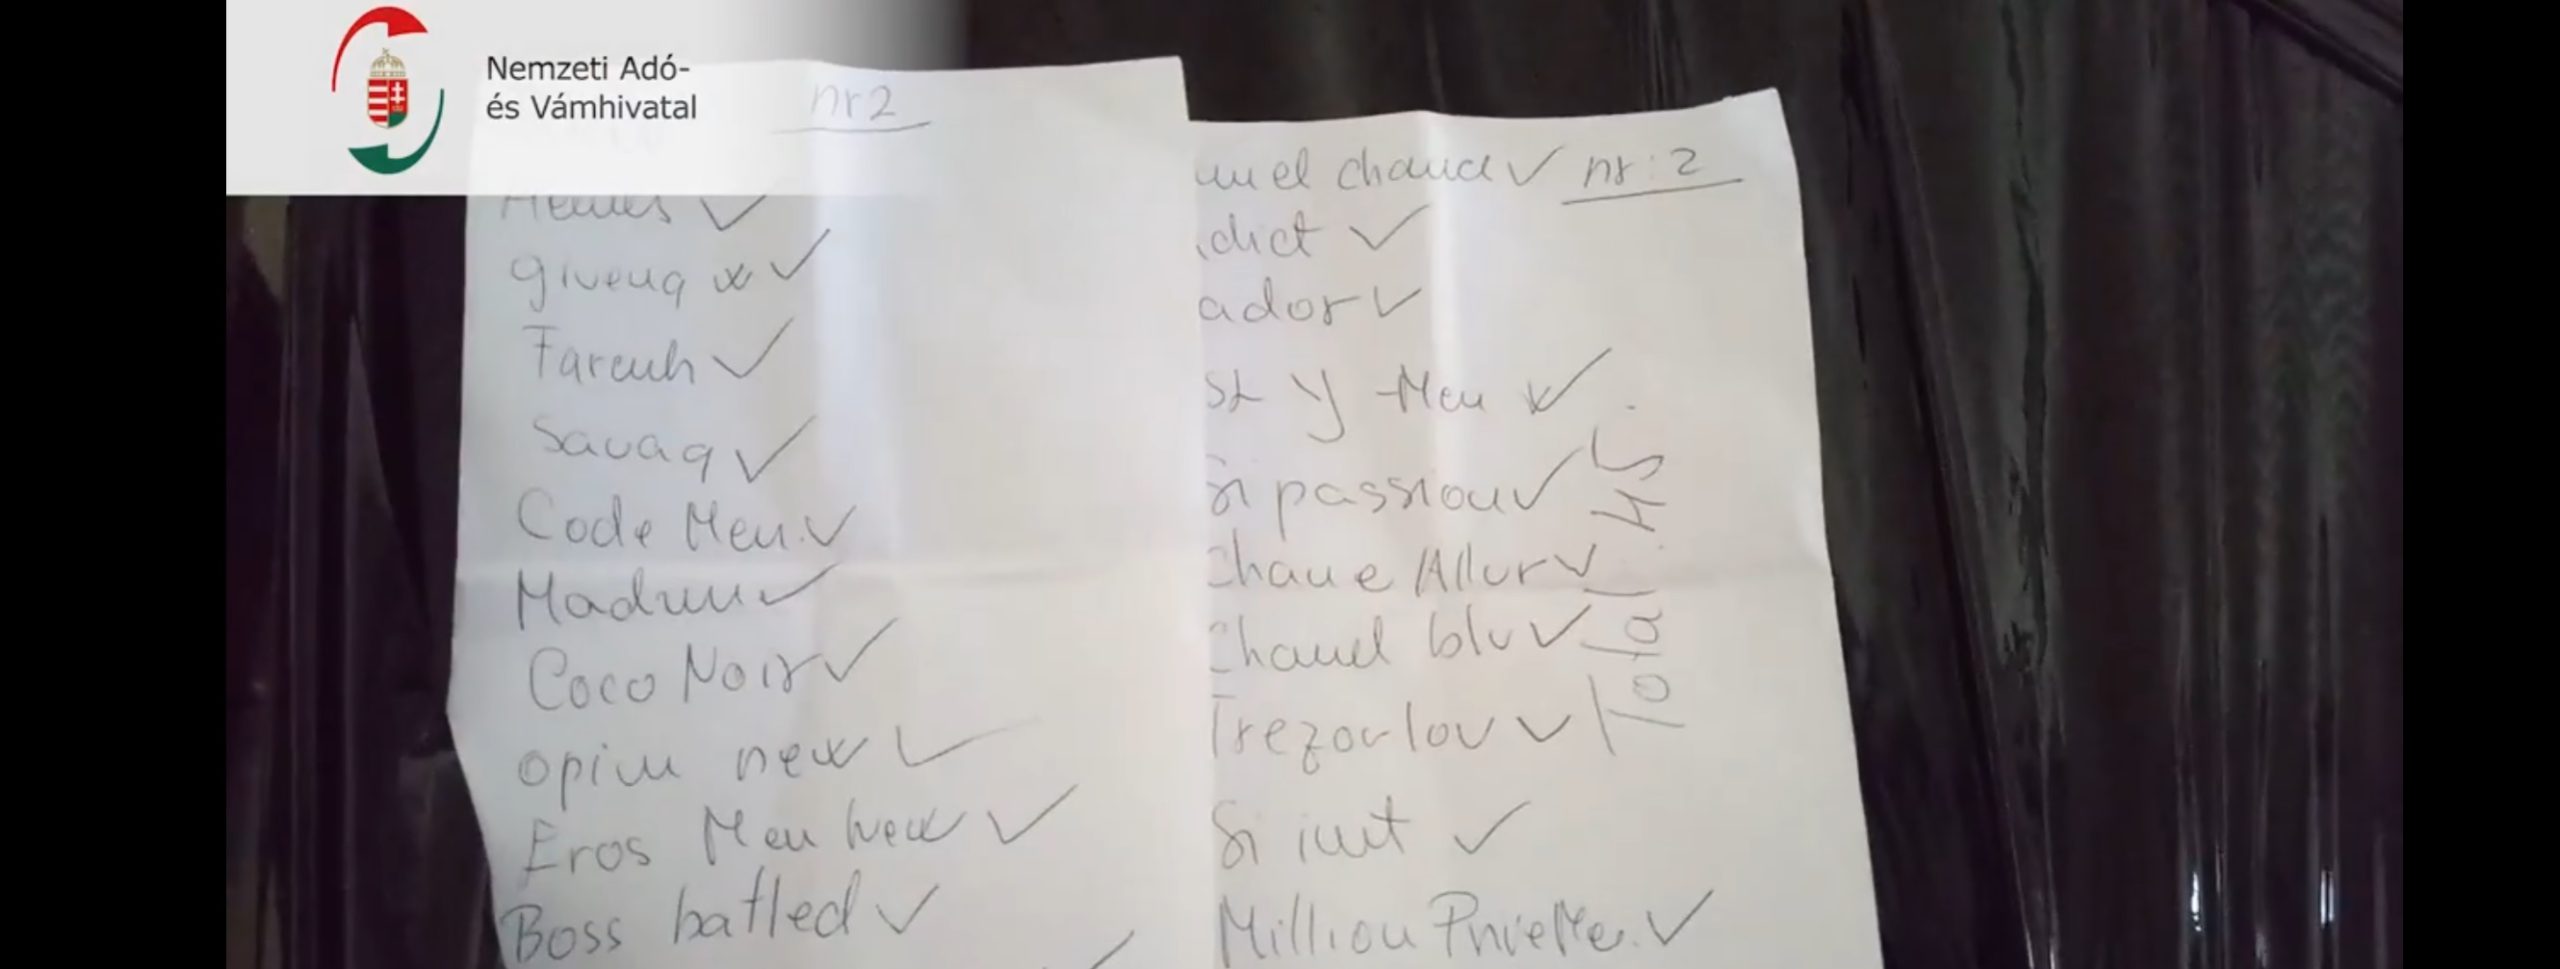 Nemzeti Adó-
és Vámhivatal
nr 2
Hemes ✓
givenq x ✓
Farenh ✓
Savaq ✓
Code Men. ✓
Madmu ✓
Coco Noir ✓
opium new ✓
Eros Men new ✓
Boss batled ✓
nel chance ✓ nr: 2
dict ✓
ador ✓
st y Men x ✓
Si passion ✓
Chane Allur ✓
Chanel blu ✓
Trezor lov ✓
Si int ✓
Million Prive Me. ✓
Total: 45.